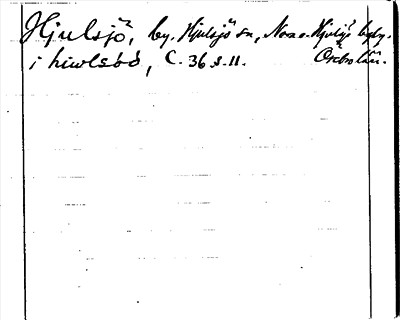 Hjulsjö, by. Hjulsjö sn, Nora o. Hjulsjö bgby.
i hiwlsbo, C. 36 s. 11. Örebro län.